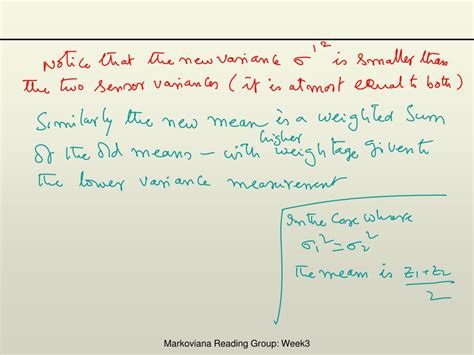 Notice that the new variance σ'² is smaller than
the two sensor variances (it is atmost equal to both)
Similarly the new mean is a weighted sum
of the old means — with higher weightage given to
the lower variance measurement
In the case where
σ₁² = σ₂²
The mean is z1+z2
2
Markoviana Reading Group: Week3